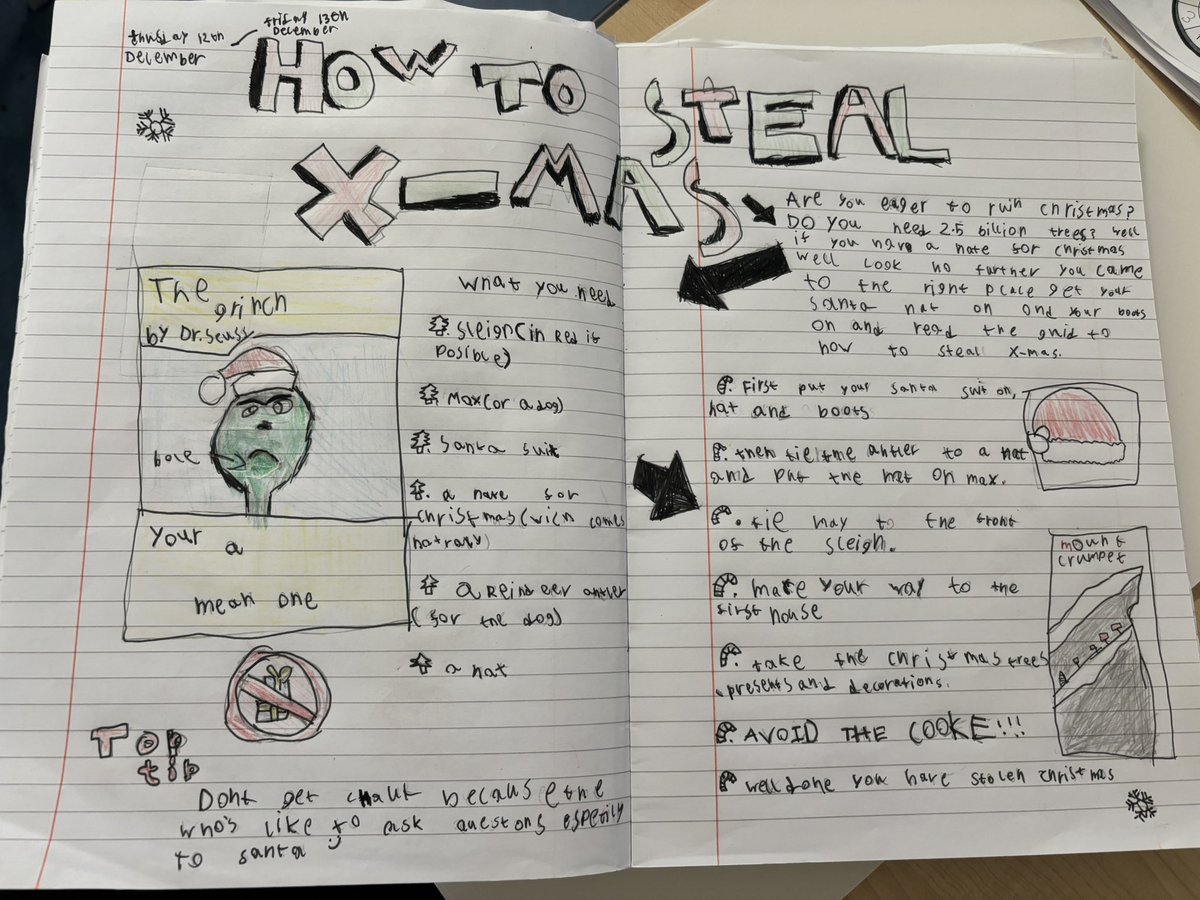 thusday 12th
December
friday 13th
December
HOW TO STEAL
X-MAS
The
grinch
by Dr.Seuss
bove
Your a
mean one
What you need
sleigh(in Red if
posible)
Max(or a dog)
santa suit
a hate for
christmas(wich comes
natraly)
a Reindeer antler
(for the dog)
a hat
Top
tip
Dont get chaut because the
who's like to ask questons especily
to santa
Are you eager to ruin christmas?
Do you need 2.5 billion trees? Well
if you have a hate for christmas
well look no further you came
to the right place get your
santa hat on and your boots
on and read the guid to
how to steal X-mas.
First put your santa suit on,
hat and boots
then tie the antler to a hat
and put the hat on max.
tie hay to the front
of the sleigh.
make your way to the
first house
take the christmas trees
presents and decorations.
AVOID THE COOKE!!!
well done you have stolen christmas
mount
crumpet